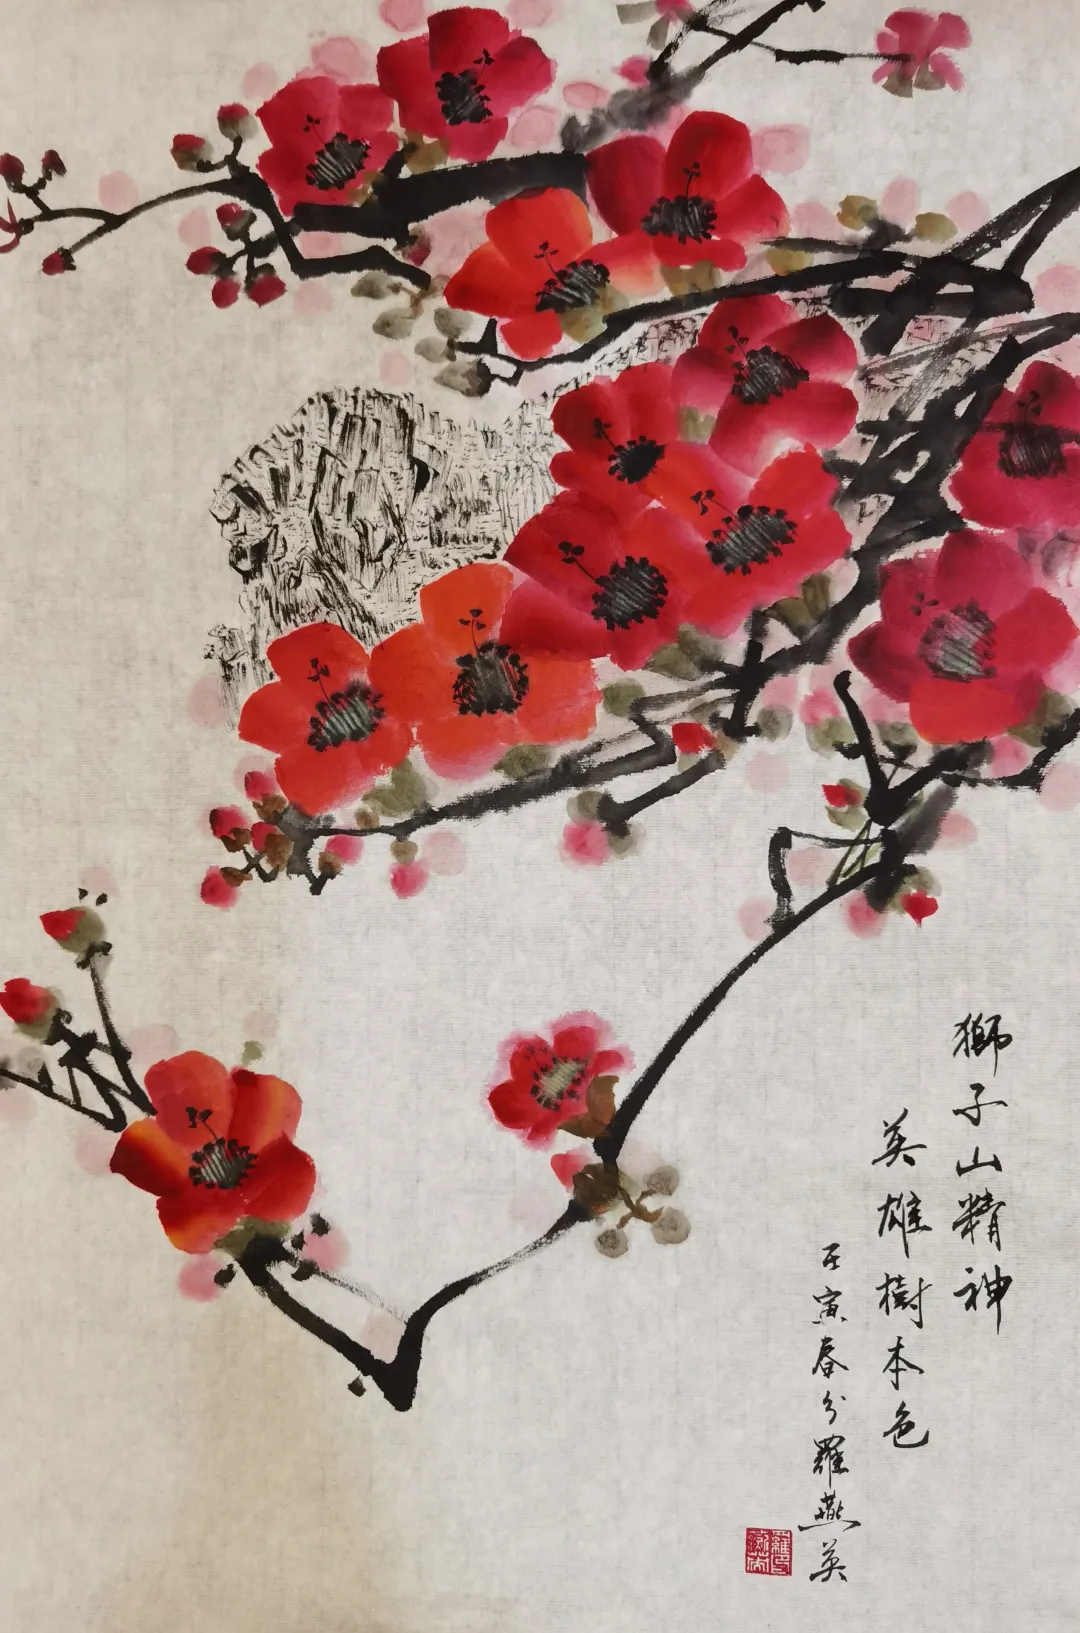 獅子山精神
英雄樹本色
壬寅春分羅燕英